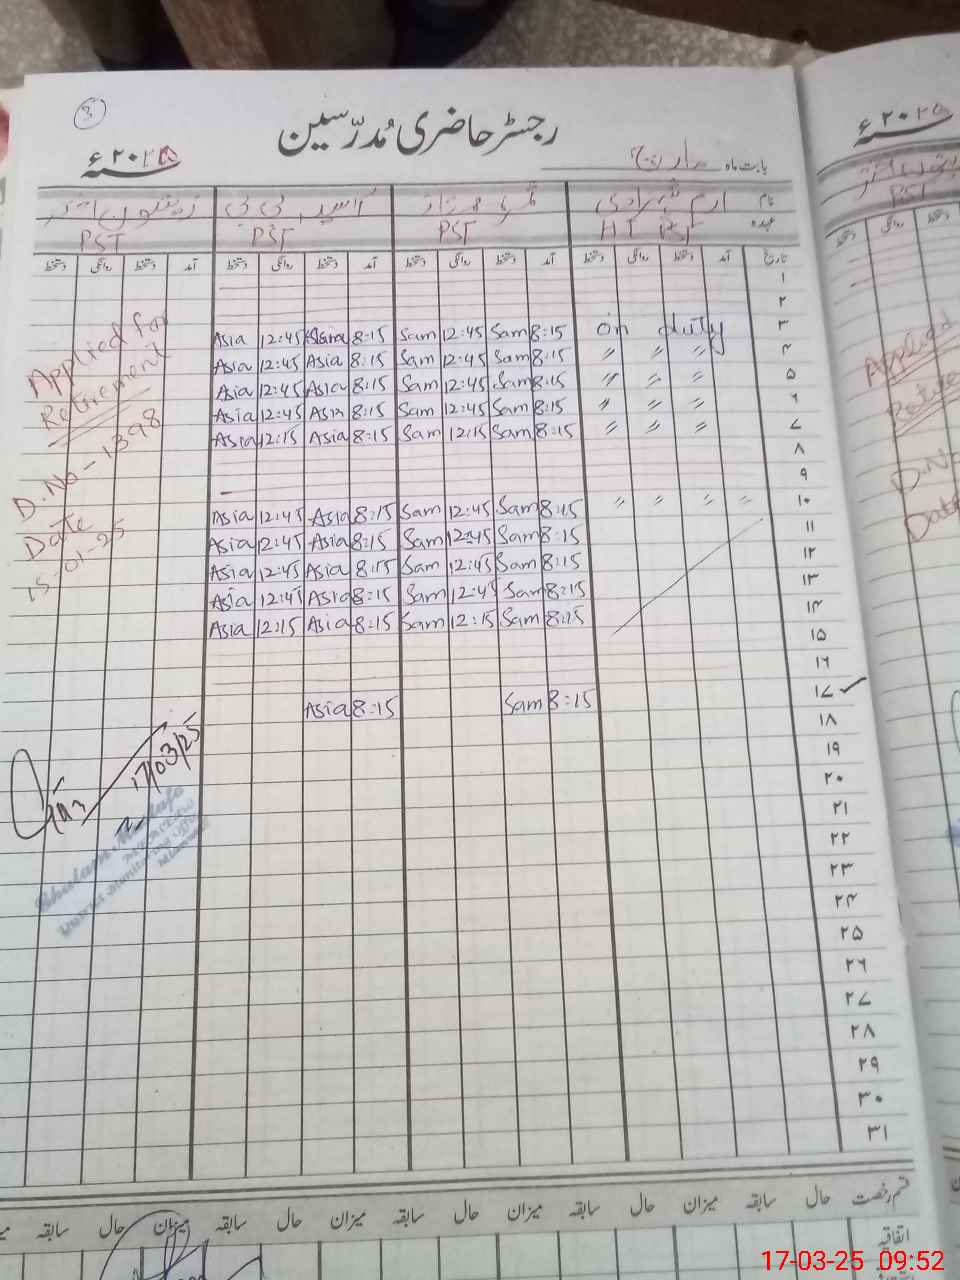 3
رجسٹر حاضری مُدرّسین
سنہ ٢٠٢٥ء
بابت ماہ مارچ
نام ارم شہزادی ثمرہ آسیہ بی بی زیتون اختر
عہدہ HT PST PST PST PST
تاریخ آمد دستخط روانگی دستخط آمد دستخط روانگی دستخط آمد دستخط روانگی دستخط آمد دستخط روانگی دستخط
١
٢
Asia 12:45 Asia 8:15 Sam 12:45 Sam 8:15 on duty ٣
Asia 12:45 Asia 8:15 Sam 12:45 Sam 8:15 " " " ۴
Asia 12:45 Asia 8:15 Sam 12:45 Sam 8:15 " " " ۵
Asia 12:45 Asia 8:15 Sam 12:45 Sam 8:15 " " " ٦
Asia 12:15 Asia 8:15 Sam 12:15 Sam 8:15 " " " ٧
٨
٩
Asia 12:45 Asia 8:15 Sam 12:45 Sam 8:15 " " " " ١٠
Asia 12:45 Asia 8:15 Sam 12:45 Sam 8:15 ١١
Asia 12:45 Asia 8:15 Sam 12:45 Sam 8:15 ١٢
Asia 12:45 Asia 8:15 Sam 12:45 Sam 8:15 ١٣
Asia 12:15 Asia 8:15 Sam 12:15 Sam 8:15 ١۴
١۵
١٦
Asia 8:15 Sam 8:15 ١٧
١٨
١٩
٢٠
٢١
٢٢
٢٣
٢۴
٢۵
٢٦
٢٧
٢٨
٢٩
٣٠
٣١
Applied for
Retirement
D.No - 1398
Date
15-01-25
17/03/25
Ghulam Mustafa
قسم رخصت حال سابقہ میزان حال سابقہ میزان حال سابقہ میزان حال سابقہ
اتفاقیہ
سنہ ٢٠٢٥
PST
Applied
D.No
Date
17-03-25 09:52